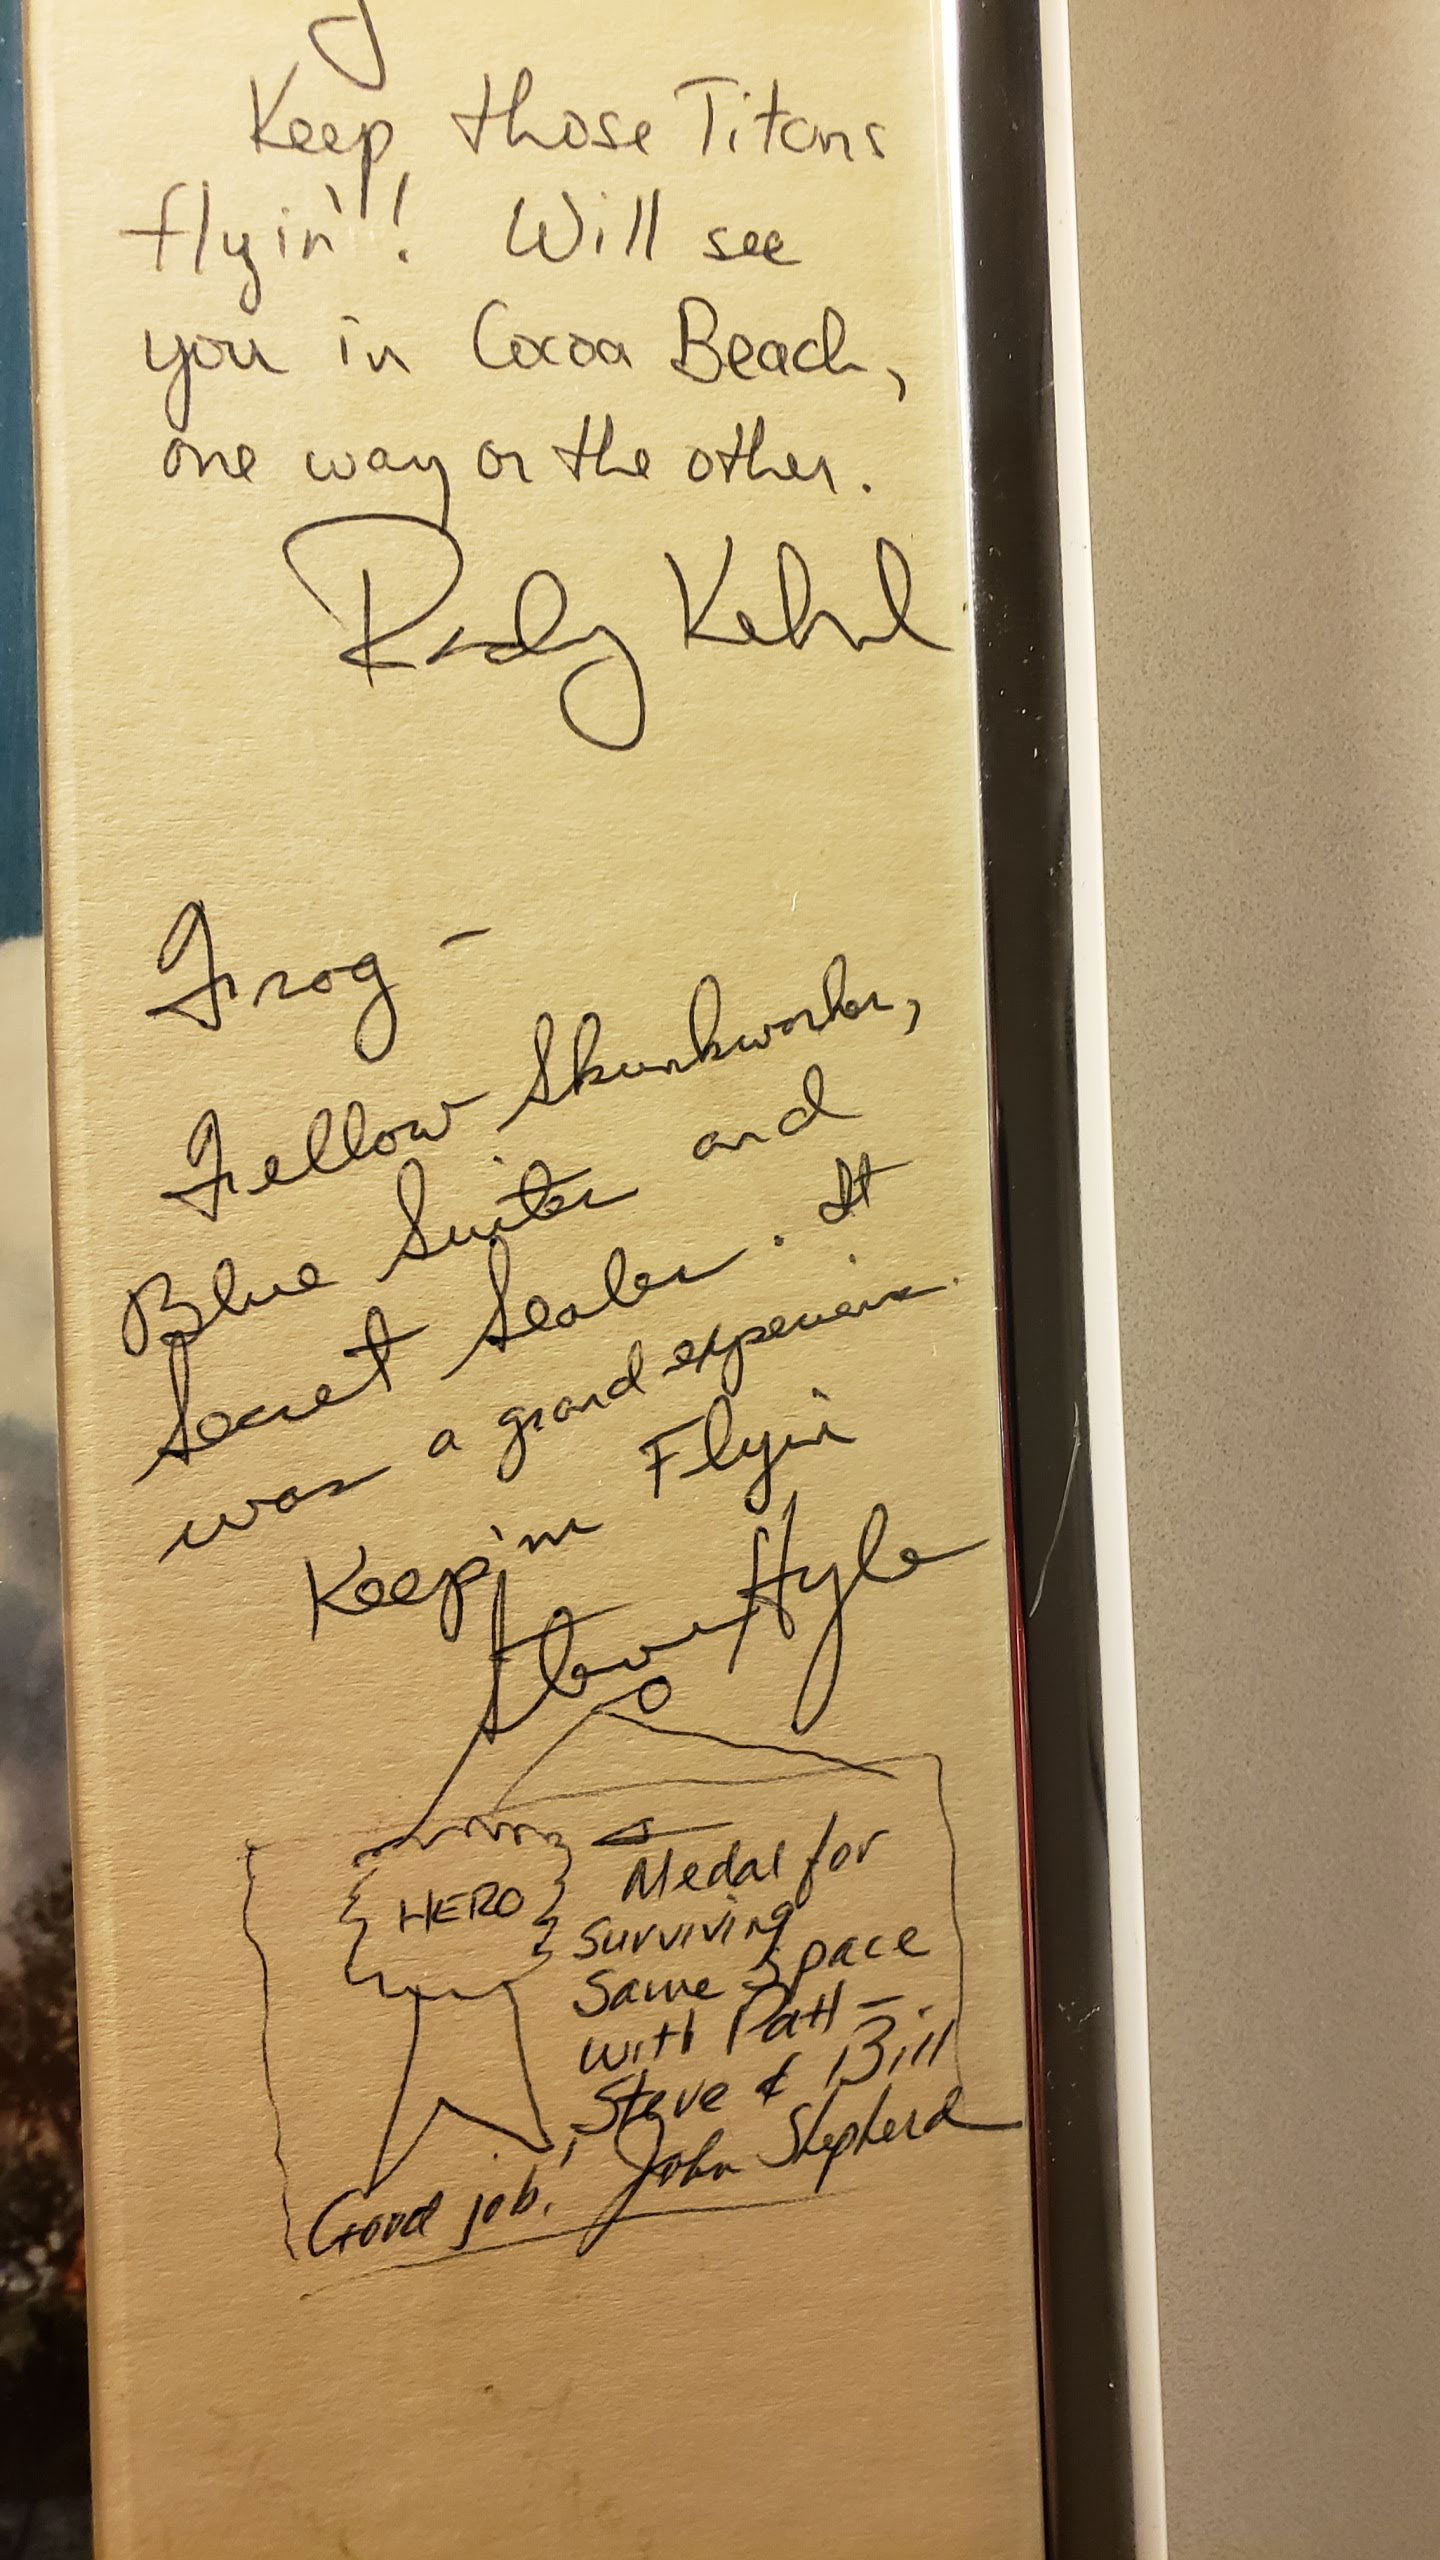 Keep those Titans
flyin'! Will see
you in Cocoa Beach,
one way or the other.
Randy
Frog -
Fellow Skunkworker,
Blue Suiter and
Secret Sealer. It
was a grand experience.
Keep'm Flyin
Steve Hyle
HERO
Medal for
surviving
Same Space
with Patt -
Steve & Bill
Good job, John Shepherd